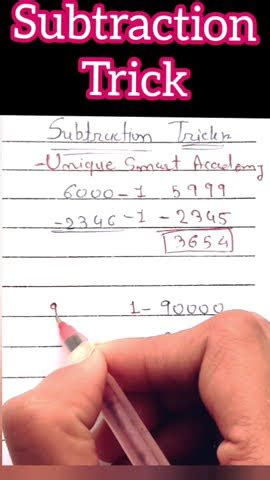 Subtraction
Trick
Subtraction Tricks
-Unique Smart Academy
6000-1 5999
-2346 -1 -2345
3654
9 1-90000